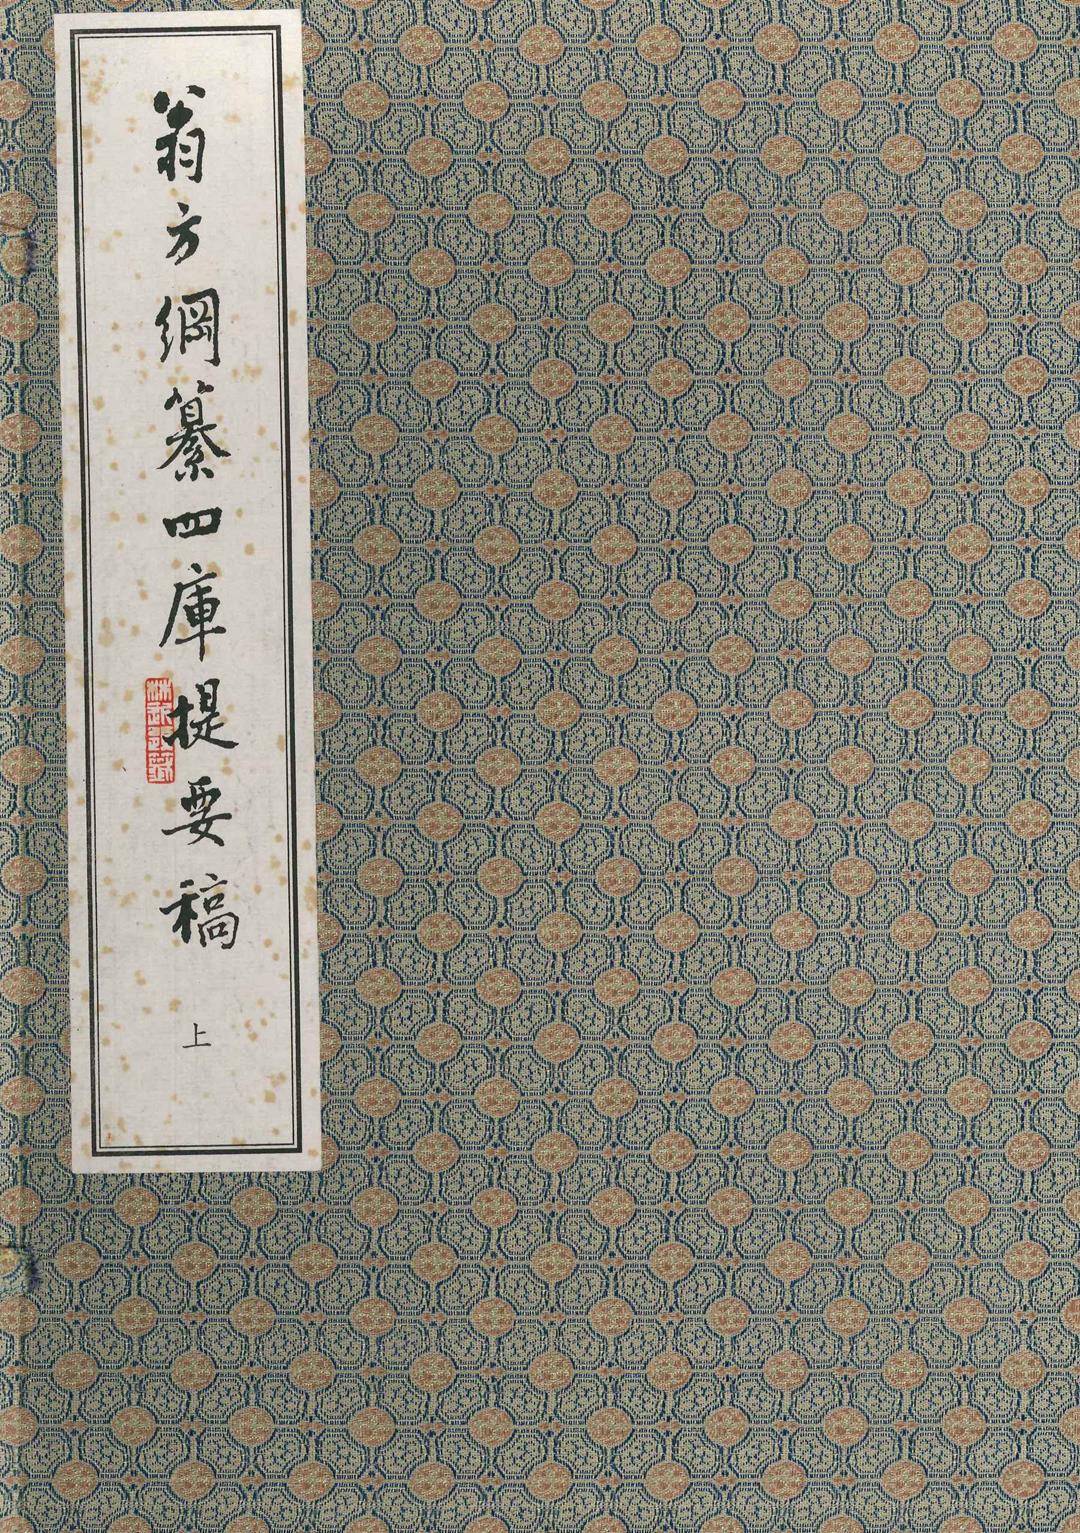 翁方綱纂四庫提要稿
上